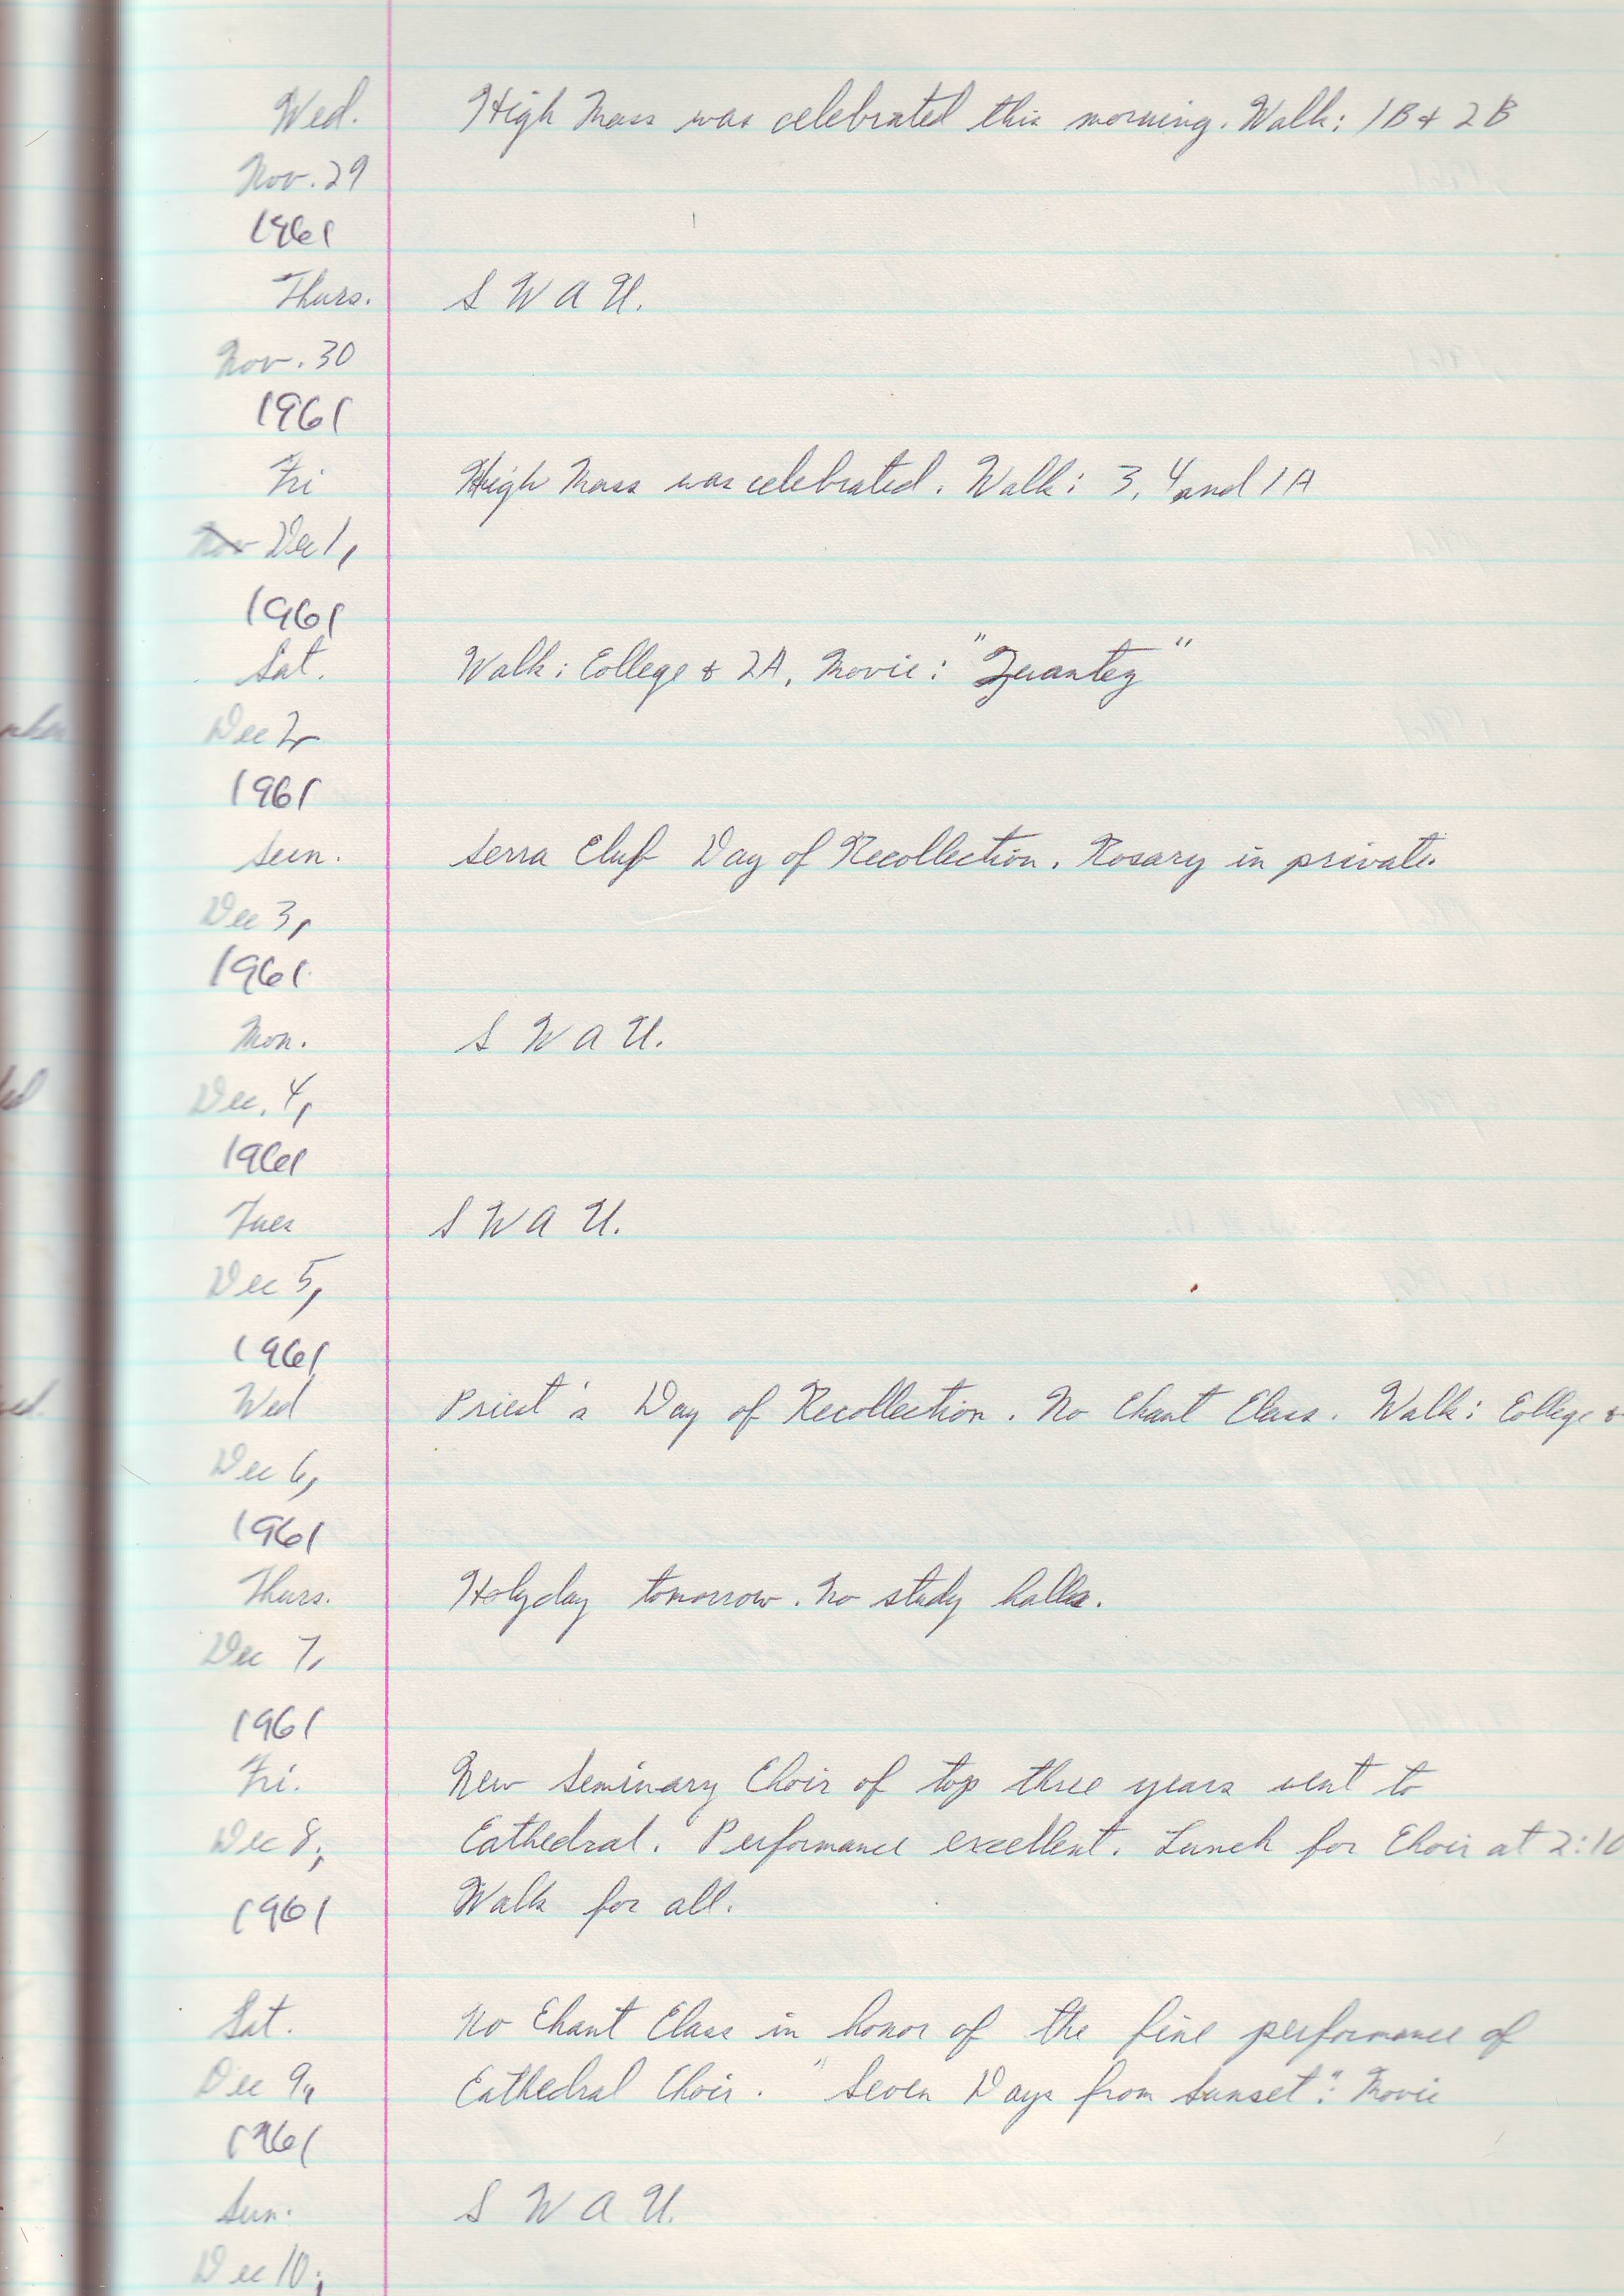 Wed. High Mass was celebrated this morning. Walk: 1B & 2B
Nov. 29
1961
Thurs. S W A U.
Nov. 30
1961
Fri High Mass was celebrated. Walk: 3, 4 and 1A
Nov Dec 1,
1961
Sat. Walk: College & 2A, Movie: "Quantez"
Dec 2,
1961
Sun. Serra Club Day of Recollection. Rosary in private.
Dec 3,
1961
Mon. S W A U.
Dec. 4,
1961
Tues S W A U.
Dec 5,
1961
Wed Priest's Day of Recollection. No Chant Class. Walk: College &
Dec 6,
1961
Thurs. Holyday tomorrow. No study halls.
Dec 7,
1961
Fri. New Seminary Choir of top three years went to
Dec 8, Cathedral. Performance excellent. Lunch for Choir at 2:10
1961 Walk for all.
Sat. No Chant Class in honor of the fine performance of
Dec 9, Cathedral Choir. "Seven Days from Sunset": Movie
1961
Sun. S W A U.
Dec 10,